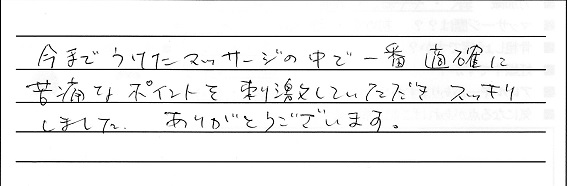 今までうけたマッサージの中で一番適確に
苦痛なポイントを刺激していただきスッキリ
しました。ありがとうございます。